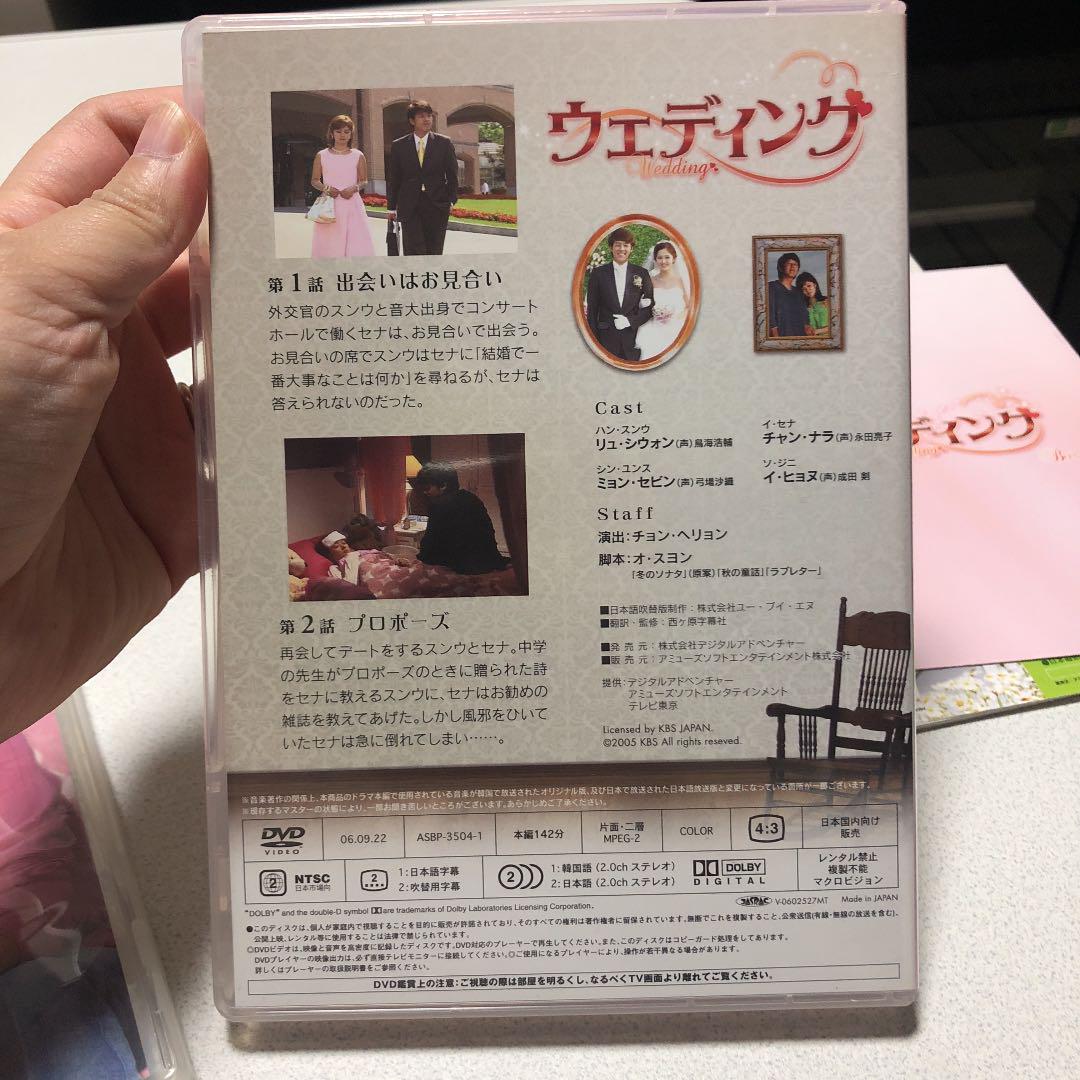 ウェディング
Wedding
第1話 出会いはお見合い
外交官のスンウと音大出身でコンサート
ホールで働くセナは、お見合いで出会う。
お見合いの席でスンウはセナに「結婚で一
番大事なことは何か」を尋ねるが、セナは
答えられないのだった。
第2話 プロポーズ
再会してデートをするスンウとセナ。中学
の先生がプロポーズのときに贈られた詩
をセナに教えるスンウに、セナはお勧めの
雑誌を教えてあげた。しかし風邪をひいて
いたセナは急に倒れてしまい……。
Cast
ハン・スンウ
リュ・シウォン(声)鳥海浩輔
イ・セナ
チャン・ナラ(声)永田亮子
シン・ユンス
ミョン・セビン(声)弓場沙織
ソ・ジニ
イ・ヒョヌ(声)成田 剣
Staff
演出：チョン・ヘリョン
脚本：オ・スヨン
「冬のソナタ」(原案)「秋の童話」「ラブレター」
■日本語吹替版制作：株式会社ユー・ブイ・エヌ
■翻訳・監修：西ヶ原字幕社
■発 売 元：株式会社デジタルアドベンチャー
■販 売 元：アミューズソフトエンタテインメント株式会社
提供：デジタルアドベンチャー
アミューズソフトエンタテインメント
テレビ東京
Licensed by KBS JAPAN.
©2005 KBS All rights reseved.
※音楽著作の関係上、本商品のドラマ本編で使用されている音楽が韓国で放送されたオリジナル版、及び日本で放送された日本語放送版と変更になっている箇所が一部ございます。
※現存するマスターの状態により、一部お聞き苦しいところがございます。あらかじめご了承ください。
DVD VIDEO
06.09.22
ASBP-3504-1
本編142分
片面・二層
MPEG-2
COLOR
4:3
日本国内向け
販売
2
NTSC
日本市場向
2
1：日本語字幕
2：吹替用字幕
2
1：韓国語 (2.0ch ステレオ)
2：日本語 (2.0ch ステレオ)
DOLBY
DIGITAL
レンタル禁止
複製不能
マクロビジョン
"DOLBY" and the double-D symbol are trademarks of Dolby Laboratories Licensing Corporation.
JASRAC V-0602527MT Made in JAPAN
●このディスクは、個人が家庭内で視聴することを目的に販売が許諾されており、そのすべての権利は著作権者に留保されています。無断でこれを複製すること、公衆送信(有線・無線の放送を含む)、
公開上映、レンタル等に使用することは法律で禁じられています。
◎DVDビデオは、映像と音声を高密度に記録したディスクです。DVD対応のプレーヤーで再生してください。また、このディスクはコピーガード処理をしてあります。
DVDプレイヤーの映像出力は、必ず直接テレビモニターに接続してください。◎ご使用になるプレイヤーにより、操作が若干異なる場合があります。
詳しくはプレーヤーの取扱説明書をご参照ください。
DVD鑑賞上の注意：ご視聴の際は部屋を明るくし、なるべくTV画面より離れてご覧ください。
ディング